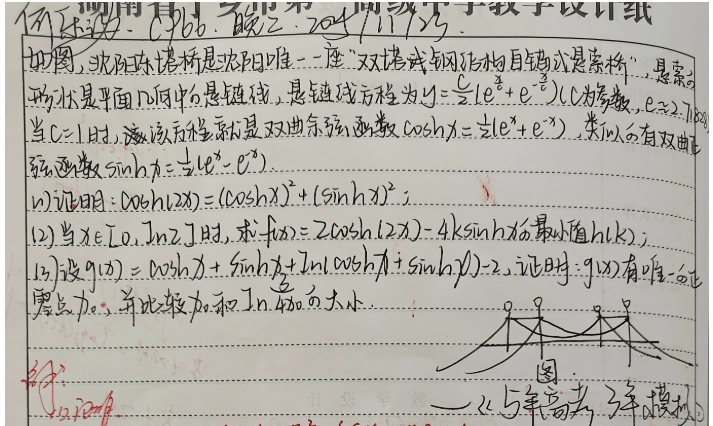 高级中学教学设计纸
例 P66. 晚三. 2024/11/23
如图,沈阳东塔桥是沈阳唯一一座“双塔式钢结构自锚式悬索桥”,悬索的
形状是平面几何中的悬链线,悬链线方程为y=\frac{c}{2}(e^{\frac{x}{c}}+e^{-\frac{x}{c}})(C为参数,e≈2.71828)
当C=1时,该方程就是双曲余弦函数cosh x=\frac{1}{2}(e^x+e^{-x}),类似的有双曲正
弦函数sinh x=\frac{1}{2}(e^x-e^{-x}).
(1)证明:cosh(2x)=(cosh x)²+(sinh x)²;
(2)当x∈[0,ln2]时,求f(x)=2cosh(2x)-4ksinh x的最小值h(k);
(3)设g(x)=cosh x+sinh x+ln(cosh x+sinh x)-2,证明:g(x)有唯一的正
零点x₀,并比较x₀和ln\frac{5}{4x₀}的大小.
图
—《5年高考 3年模拟》